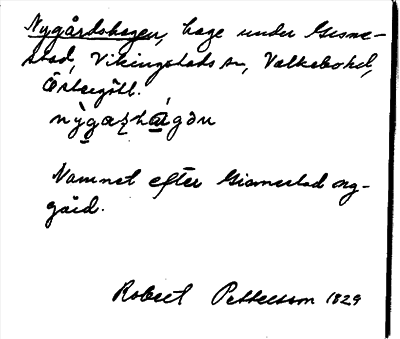 Nygårdshagen, hage under Gisme-
stad, Vikingstads sn, Valkebo hd,
Östergötl.
Namnet efter Gismestad ny-
gård.
Robert Pettersson 1929